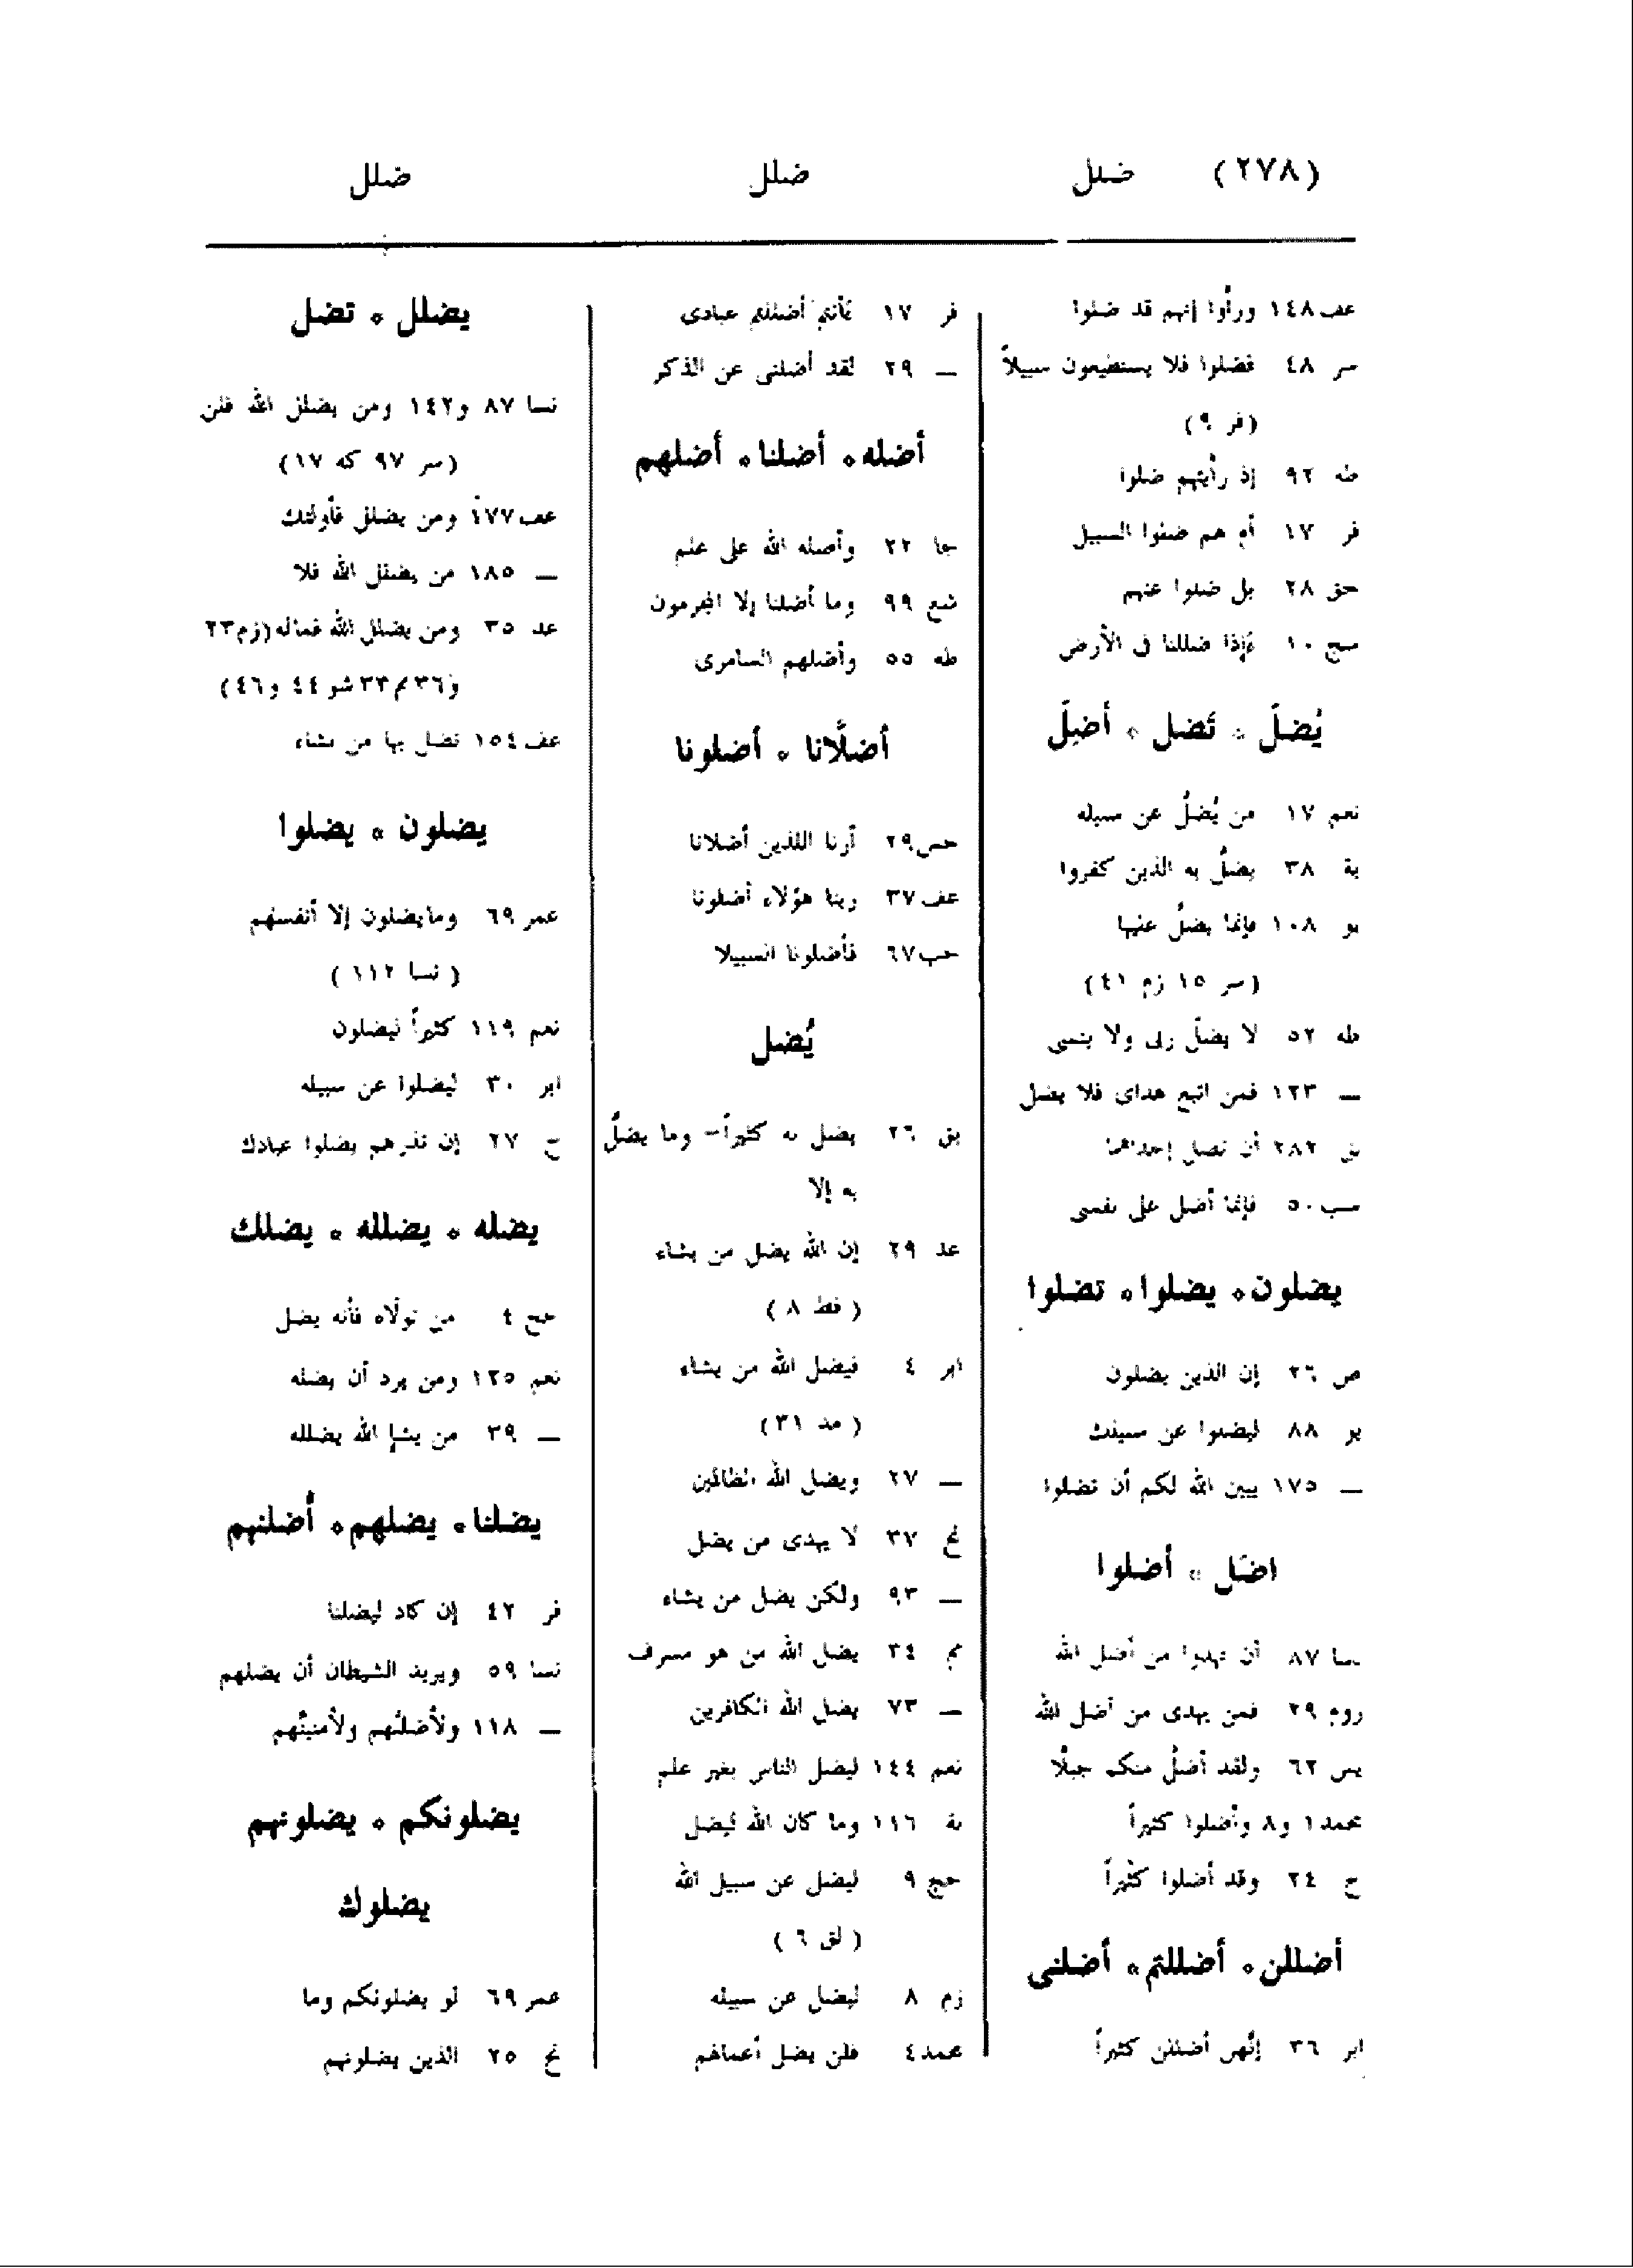 (٢٧٨) ضلل
ضلل
ضلل
عف ١٤٨ ورأوا إنهم قد ضلوا
سر ٤٨ فضلوا فلا يستطيعون سبيلاً
(فر ٩)
طه ٩٢ إذ رأيتهم ضلوا
فر ١٧ أم هم ضلوا السبيل
حق ٢٨ بل ضلوا عنهم
سج ١٠ ءإذا ضللنا فى الأرض
يُضلّ ٠ تَضل ٠ أضِلّ
نعم ١٧ من يُضلُّ عن سبيله
بة ٣٨ يضلُّ به الذين كفروا
يو ١٠٨ فإنما يضلُّ عليها
(سر ١٥ زم ٤١)
طه ٥٢ لا يضلّ ربى ولا ينسى
— ١٢٣ فمن اتبع هداى فلا يضل
بق ٢٨٢ أن تضل إحداهما
سب ٥٠ فإنما أضل على نفسى
يضلون ٠ يضلوا ٠ تضلوا
ص ٢٦ إن الذين يضلون
يو ٨٨ ليضلوا عن سبيلك
— ١٧٥ يبين الله لكم أن تضلوا
اضَل ٠ أضلوا
نسا ٨٧ أن تهدوا من أضل الله
روم ٢٩ فمن يهدى من أضل الله
يس ٦٢ ولقد أضلُ منكم جبلًا
محمد ١ و٨ وأضلوا كثيراً
ح ٢٤ وقد أضلوا كثيراً
أضللن ٠ أضللتم ٠ أضلنى
ابر ٣٦ إنَّهن أضللن كثيراً
فر ١٧ ءأنتم أضللتم عبادى
— ٢٩ لقد أضلنى عن الذكر
أضله ٠ أضلنا ٠ أضلهم
جا ٢٢ وأضله الله على علم
شع ٩٩ وما أضلنا إلا المجرمون
طه ٥٥ وأضلهم السامرى
أضلَّانا ٠ أضلونا
حس ٢٩ أرنا اللذين أضلانا
عف ٣٧ ربنا هؤلاء أضلونا
حب ٦٧ فأضلونا السبيلا
يُضل
بق ٢٦ يضل به كثيراً — وما يضلُّ
به إلا
عد ٢٩ إن الله يضل من يشاء
(فط ٨)
ابر ٤ فيضل الله من يشاء
(مد ٣١)
— ٢٧ ويضل الله الظالمين
نح ٣٧ لا يهدى من يضل
— ٩٣ ولكن يضل من يشاء
مم ٣٤ يضل الله من هو مسرف
— ٧٣ يضل الله الكافرين
نعم ١٤٤ ليضل الناس بغير علم
بة ١١٦ وما كان الله ليضل
حج ٩ ليضل عن سبيل الله
(لق ٦)
زم ٨ ليضل عن سبيله
محمد ٤ فلن يضل أعمالهم
يضلل ٠ تضل
نسا ٨٧ و١٤٢ ومن يضلل الله فلن
(سر ٩٧ كه ١٧)
عف ١٧٧ ومن يضلل فأولئك
— ١٨٥ من يضلل الله فلا
عد ٣٥ ومن يضلل الله فماله (زم ٢٣
و٣٦ مم ٣٣ شو ٤٤ و٤٦)
عف ١٥٤ تضل بها من تشاء
يضلون ٠ يضلوا
عمر ٦٩ وما يضلون إلا أنفسهم
(نسا ١١٢)
نعم ١١٩ كثيراً ليضلون
ابر ٣٠ ليضلوا عن سبيله
ح ٢٧ إن تذرهم يضلوا عبادك
يضله ٠ يضلله ٠ يضلك
حج ٤ من تولّاه فأنه يضل
نعم ١٢٥ ومن يرد أن يضله
— ٣٩ من يشإ الله يضلله
يضلنا ٠ يضلهم ٠ أُضلنهم
فر ٤٢ إن كاد ليضلنا
نسا ٥٩ ويريد الشيطان أن يضلهم
— ١١٨ ولأضلنَّهم ولأمنينَّهم
يضلونكم ٠ يضلونهم
يضلوك
عمر ٦٩ لو يضلونكم وما
نح ٢٥ الذين يضلونهم